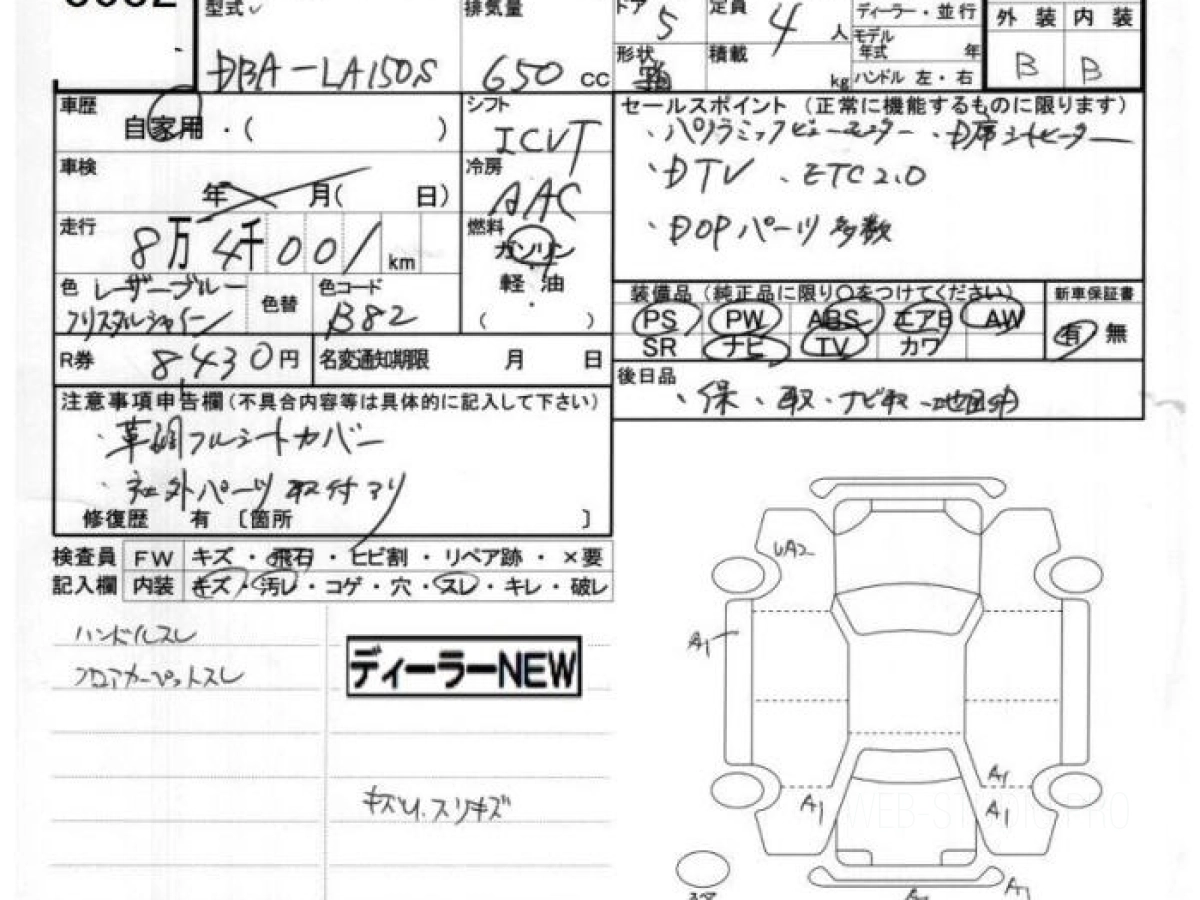 型式
DBA-LA150S
排気量
650 cc
ドア 5
定員 4 人
形状
積載 kg
ディーラー・並行
モデル年式 年
ハンドル 左・右
外装 内装
B B
車歴
自家用・( )
シフト
ICVT
車検
年 月( 日)
冷房
AAC
走行
8万4千001 km
燃料
ガソリン
軽・油
( )
色 レーザーブルー
クリスタルシャイン
色替
色コード
B82
R券 8,430円
名変通知期限 月 日
セールスポイント (正常に機能するものに限ります)
・パノラミックビューモニター ・D席シートヒーター
・DTV 、ETC2.0
・DOPパーツ多数
装備品 (純正品に限り○をつけてください)
新車保証書
PS PW ABS エアB AW
SR ナビ TV カワ
有 無
後日品
・保、取・ナビ取
注意事項申告欄(不具合内容等は具体的に記入して下さい)
・革調フルシートカバー
・社外パーツ取付アリ
修復歴 有 〔箇所 〕
検査員
記入欄
FW キズ・飛石・ヒビ割・リペア跡・×要
内装 キズ・汚レ・コゲ・穴・スレ・キレ・破レ
ハンドルスレ
フロアカーペットスレ
ディーラーNEW
キズU.スリキズ
UA2
A1
A1
A1
A1
WEB-STUDIO PRO